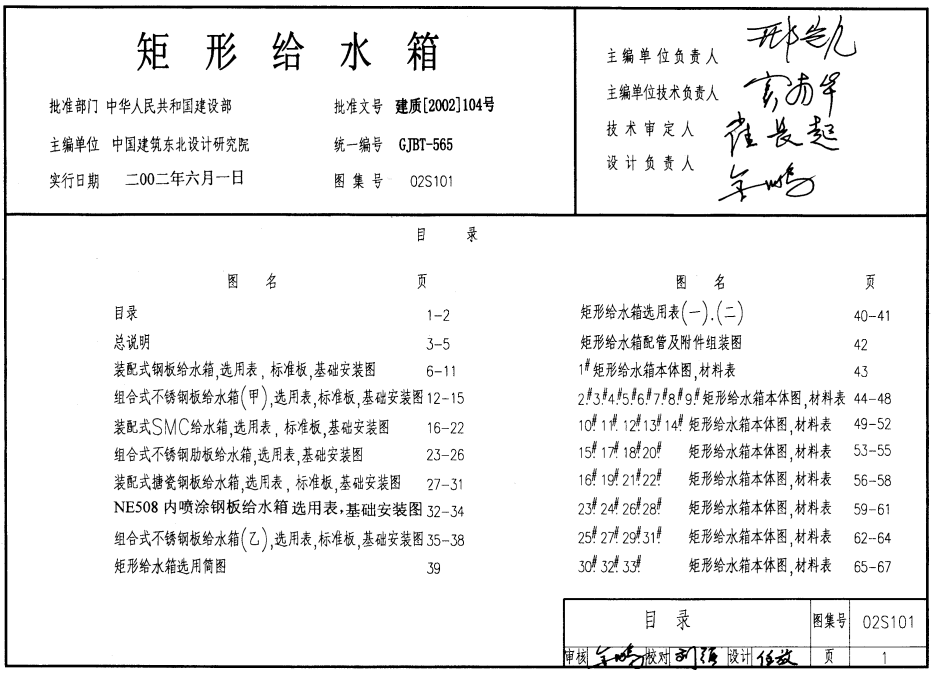 矩形给水箱
批准部门 中华人民共和国建设部 批准文号 建质[2002]104号
主编单位 中国建筑东北设计研究院 统一编号 GJBT-565
实行日期 二〇〇二年六月一日 图集号 02S101
主编单位负责人
主编单位技术负责人
技术审定人 崔长起
设计负责人 金鹏
目 录
图 名 页
目录 1-2
总说明 3-5
装配式钢板给水箱,选用表,标准板,基础安装图 6-11
组合式不锈钢板给水箱(甲),选用表,标准板,基础安装图 12-15
装配式SMC给水箱,选用表,标准板,基础安装图 16-22
组合式不锈钢肋板给水箱,选用表,基础安装图 23-26
装配式搪瓷钢板给水箱,选用表,标准板,基础安装图 27-31
NE508内喷涂钢板给水箱选用表,基础安装图 32-34
组合式不锈钢板给水箱(乙),选用表,标准板,基础安装图 35-38
矩形给水箱选用简图 39
图 名 页
矩形给水箱选用表(一).(二) 40-41
矩形给水箱配管及附件组装图 42
1#矩形给水箱本体图,材料表 43
2#.3#.4#.5#.6#.7#.8#.9#矩形给水箱本体图,材料表 44-48
10#.11#.12#13#.14#矩形给水箱本体图,材料表 49-52
15#.17#.18#20# 矩形给水箱本体图,材料表 53-55
16#.19#.21#22# 矩形给水箱本体图,材料表 56-58
23#.24#.26#28# 矩形给水箱本体图,材料表 59-61
25#.27#.29#31# 矩形给水箱本体图,材料表 62-64
30#.32#.33# 矩形给水箱本体图,材料表 65-67
目 录 图集号 02S101
审核 金鹏 校对 设计 任放 页 1